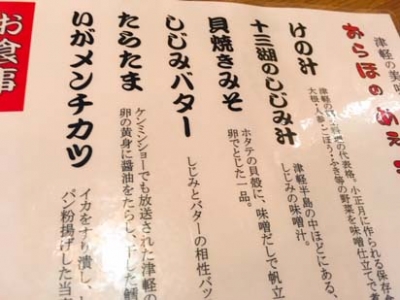 津軽の美味
おらほのめえ
けの汁
津軽の代表格。小正月に作られる保存食
大根・人参・ごぼう・ふき等の野菜を味噌仕立てで
十三湖のしじみ汁
津軽半島の中ほどにある、
しじみの味噌汁。
貝焼きみそ
ホタテの貝殻に、味噌だしで帆立
卵でとじた一品。
しじみバター
しじみとバターの相性バッ
たらたま
ケンミンショーでも放送された津軽の
卵の黄身に醤油をたらし、干した鱈
いがメンチカツ
イカをすり潰し、
パン粉揚げした当
お食事